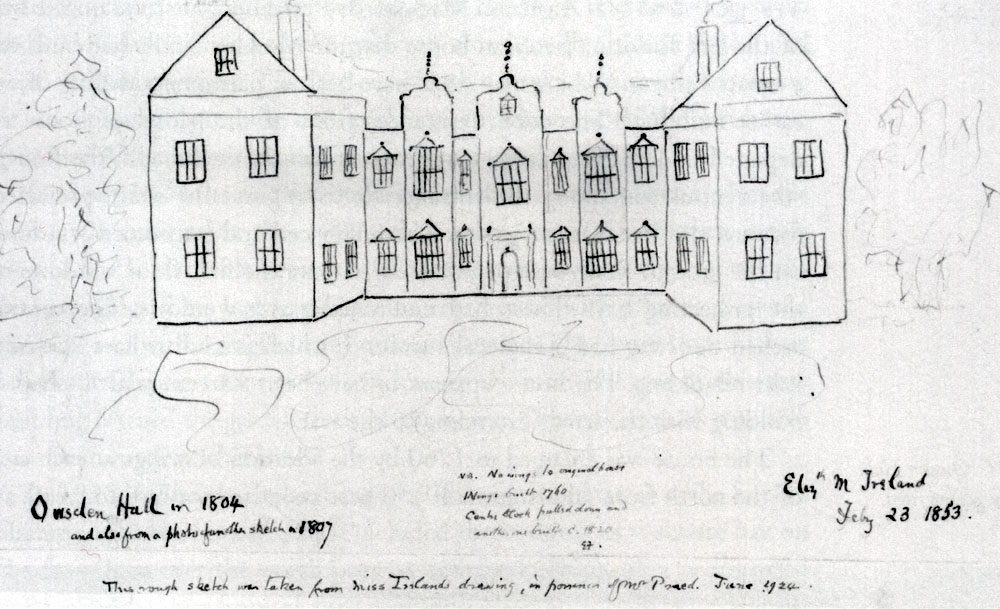 Ousden Hall in 1804
and also from a photo of another sketch in 1807
NB. No wings to original house
Wings built 1760
Centre block pulled down and
another one built c. 1820
Eliz<sup>th</sup> M Ireland
Feby 23 1853.
This rough sketch was taken from Miss Irelands drawing, in possession of Mr Praed. June 1924.